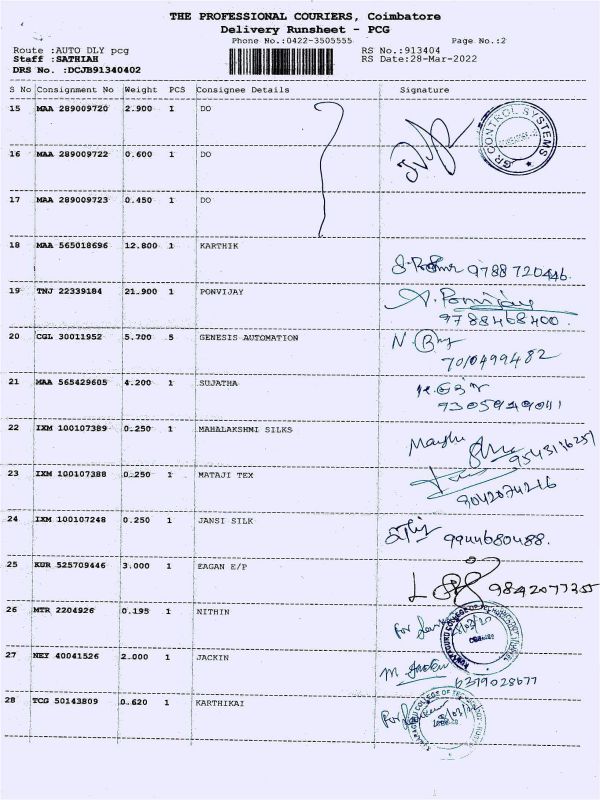 THE PROFESSIONAL COURIERS, Coimbatore
Delivery Runsheet - PCG
Phone No.:0422-3505555 Page No.:2
Route :AUTO DLY pcg RS No.:913404
Staff :SATHIAH RS Date:28-Mar-2022
DRS No. :DCJB91340402
S No Consignment No Weight PCS Consignee Details Signature
15 MAA 289009720 2.900 1 DO
GR CONTROL SYSTEMS
16 MAA 289009722 0.600 1 DO
17 MAA 289009723 0.450 1 DO
18 MAA 565018696 12.800 1 KARTHIK
9788720446.
19 TNJ 22339184 21.900 1 PONVIJAY
A. Ponvijay
9788468400.
20 CGL 30011952 5.700 5 GENESIS AUTOMATION
7010499482
21 MAA 565429605 4.200 1 SUJATHA
9305949041
22 IXM 100107389 0.250 1 MAHALAKSHMI SILKS
23 IXM 100107388 0.250 1 MATAJI TEX
9042074216
24 IXM 100107248 0.250 1 JANSI SILK
9944680488.
25 KUR 525709446 3.000 1 EAGAN E/P
26 MTR 2204926 0.195 1 NITHIN
For
27 NEY 40041526 2.000 1 JACKIN
6379028677
28 TCG 50143809 0.620 1 KARTHIKAI
For